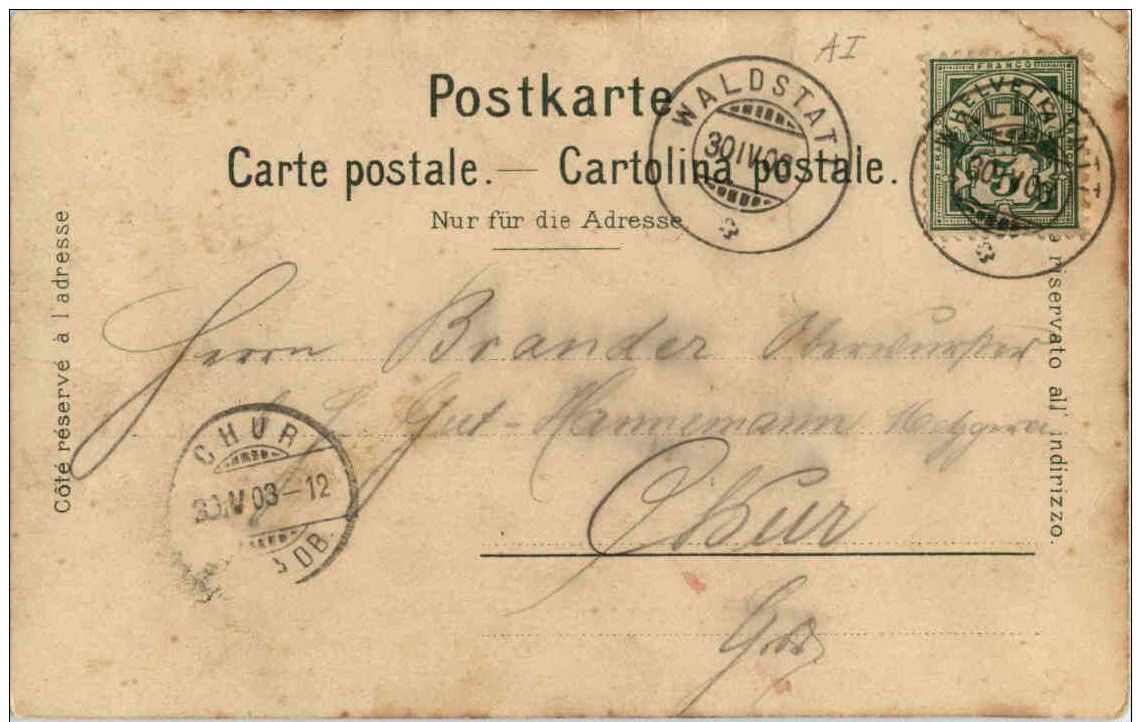 AI
Postkarte
Carte postale. — Cartolina postale.
Nur für die Adresse
WALDSTATT
30 IV 03
FRANCO
HELVETIA
5
WALDSTATT
30 IV 03
Côté réservé à l'adresse.
riservato all' indirizzo.
Herrn Brander Oberwurster
Gut - Hannemann Metzgerei
Chur
CHUR
30.IV 03-12